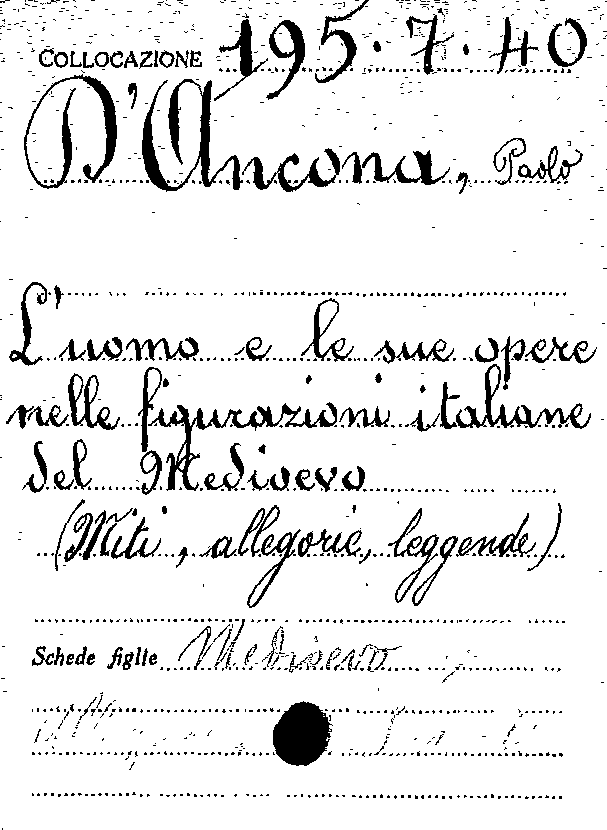 COLLOCAZIONE 195.7.40
D'Ancona, Paolo
L'uomo e le sue opere
nelle figurazioni italiane
del Medioevo
(Miti, allegorie, leggende)
Schede figlie Medioevo